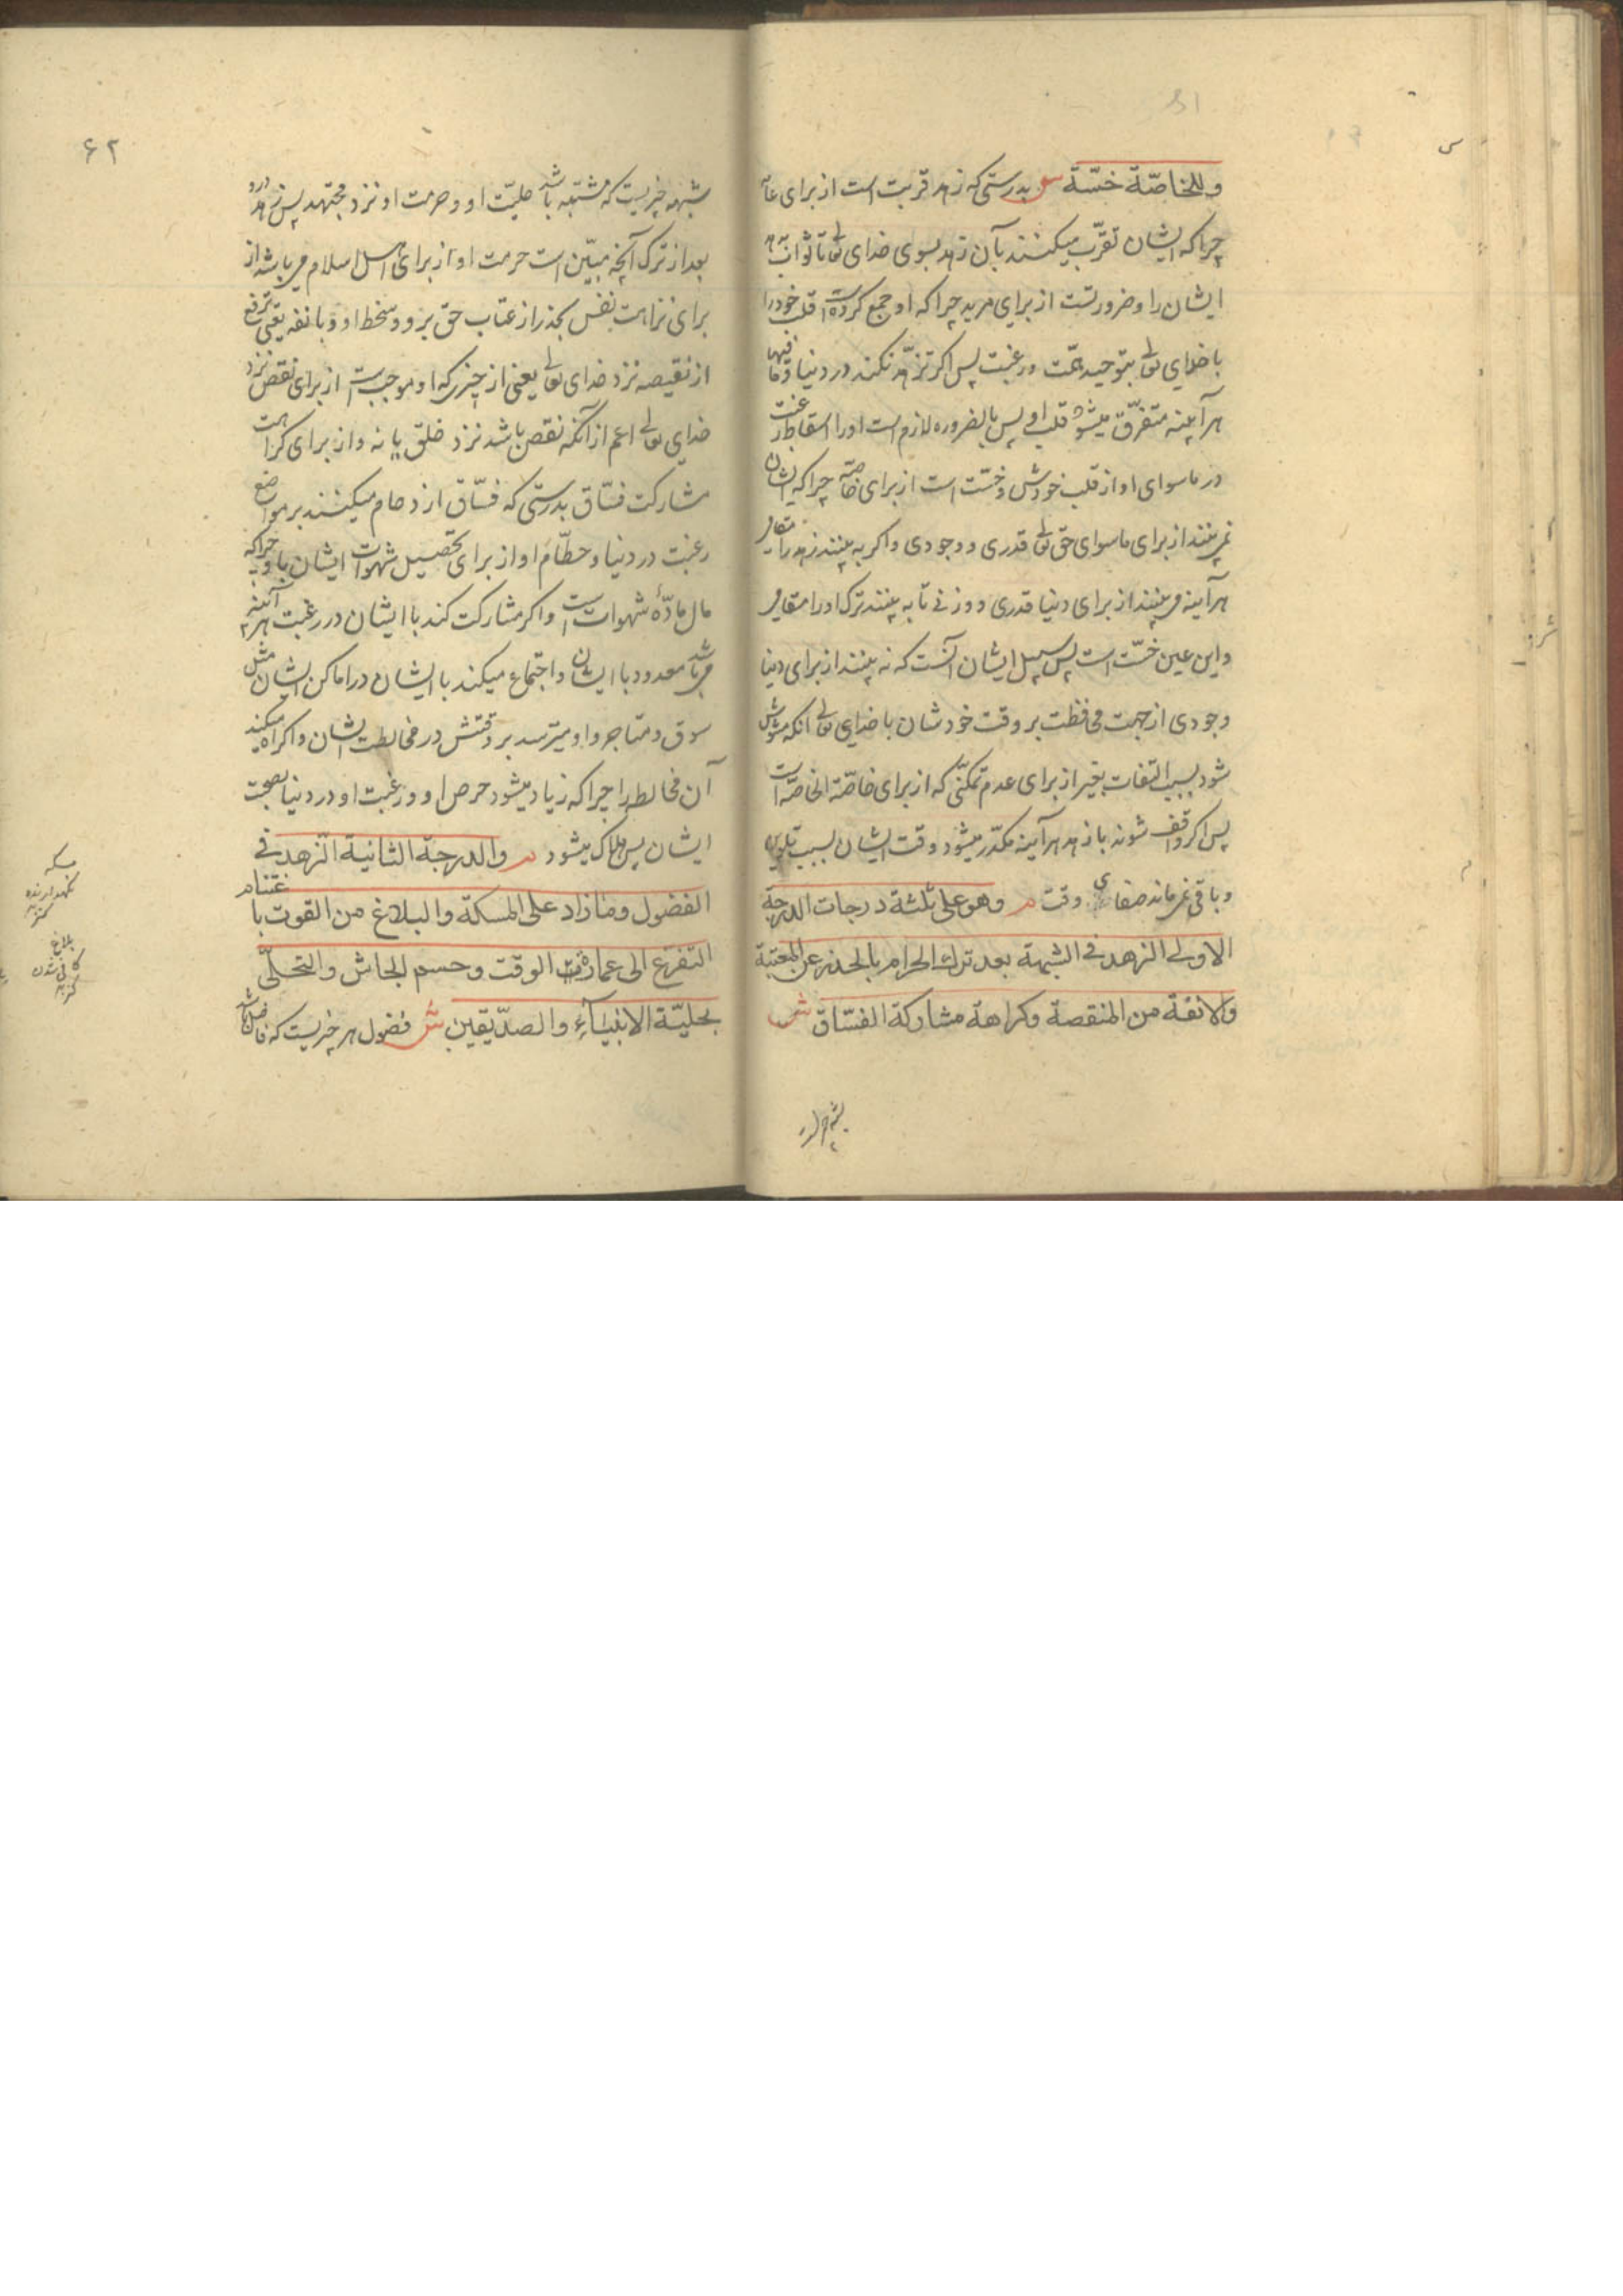 وللخاصّة خسّة ش بدرستی که زهد قربت است از برای عامّه
چراکه ایشان تقرّب میکنند بآن زهد بسوی خدای تعالی تا ثواب دهد
ایشان را و ضرورتست از برای مرید چراکه او جمع کرده است قلب خود را
با خدای تعالی بتوحید همّت و رغبت پس اکر تزهّد نکند در دنیا و ما فیها
هرآینه متفرّق میشود قلب او پس بالضروره لازم است او را اسقاط رغبت
در ماسوای او از قلب خودش و خسّت است از برای خاصّه چراکه ایشان
نمی بینند از برای ماسوای حق تعالی قدری و وجودی و اکر به بینند زهد را مقامی
هرآینه می بینند از برای دنیا قدری و وزنی تا به بینند ترک او را مقامی
و این عین خسّت است پس سبیل ایشان آنست که نه بینند از برای دنیا
وجودی از جهت محافظت بر وقت خودشان با خدای تعالی آنکه مشوّش
شود بسبب التفات بغیر از برای عدم تمکنّی که از برای خاصّة الخاصّه است
پس اکر واقف شوند با زهد هرآینه مکدّر میشود وقت ایشان بسبب تلوین
و باقی نمی ماند صفای وقت م وهو علی ثلثة درجات الدرجة
الاولی الزهد فی الشبهة بعد ترك الحرام بالحذر عن المعتبة
والانفة من المنقصة وکراهة مشارکة الفسّاق ش
۶۲
شبهه چیزیست که مشتبه باشد حلیّت او و حرمت او نزد مجتهد پس زهد درو
بعد از ترک آنچه مبیّن است حرمت او از برای اهل اسلام می باشد از
برای نزاهت نفس بحذر از عتاب حق برو و سخط او و بانفه یعنی ترفع
از نقیصه نزد خدای تعالی یعنی از چیزی که او موجب است از برای نقص نزد
خدای تعالی اعم از آنکه نقص باشد نزد خلق یا نه و از برای کراهت
مشارکت فسّاق بدرستی که فسّاق ازدحام میکنند بر مواضع
رغبت در دنیا و حطّام او از برای تحصیل شهوات ایشان باو چراکه
مال مادّهٔ شهوات است و اکر مشارکت کند با ایشان در رغبت هرآینه
می باشد معدود با ایشان و اجتماع میکند با ایشان در اماکن ایشان مثل
سوق و متاجر و او میترسد بر وقتش در مخالطت ایشان و اکراه میکند
آن مخالطه را چراکه زیاد میشود حرص او و رغبت او در دنیا بصحبت
ایشان پس هلاک میشود م والدرجة الثانیة الزهد فی
الفضول وما زاد علی المسکة والبلاغ من القوت باغتنام
التفرغ الی عمارة الوقت وحسم الجاش والتحلّی
بحلیّة الانبیآء والصدّیقین ش فضول هر چیزیست که فاضل باشد
مسکه
نکهدارنده
کنز
بلاغ
کافی شدن
کنز
شبهه چیز